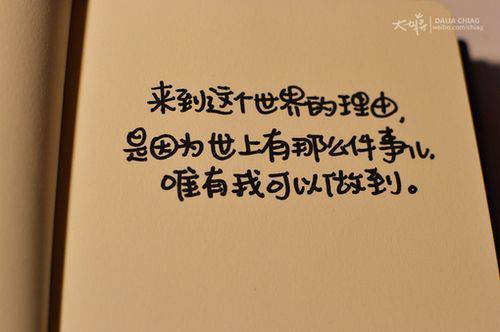 DALIA CHIAG
weibo.com/chiag
来到这个世界的理由,
是因为世上有那么件事儿,
唯有我可以做到。